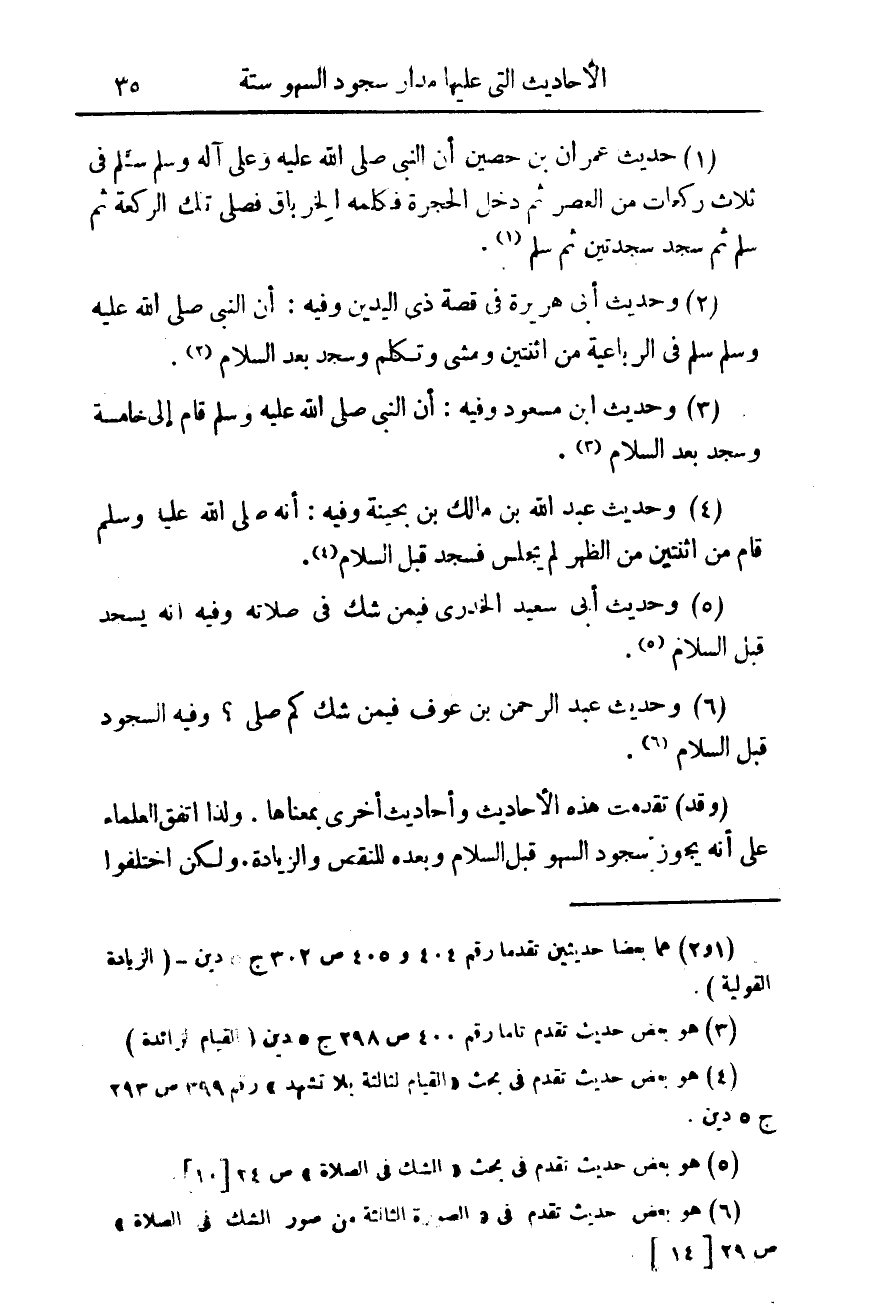 الأحاديث التى عليها مدار سجود السهو ستة ٣٥
(١) حديث عمران بن حصين أن النبى صلى الله عليه وعلى آله وسلم سلم فى
ثلاث ركعات من العصر ثم دخل الحجرة فكلمه الخرباق فصلى تلك الركعة ثم
سلم ثم سجد سجدتين ثم سلم (١) .
(٢) وحديث أبى هريرة فى قصة ذى اليدين وفيه : أن النبى صلى الله عليه
وسلم سلم فى الرباعية من اثنتين ومشى وتكلم وسجد بعد السلام (٢) .
(٣) وحديث ابن مسعود وفيه : أن النبى صلى الله عليه وسلم قام إلى خامسة
وسجد بعد السلام (٣) .
(٤) وحديث عبد الله بن مالك بن بحينة وفيه : أنه صلى الله عليه وسلم
قام من اثنتين من الظهر لم يجلس فسجد قبل السلام(٤).
(٥) وحديث أبى سعيد الخدرى فيمن شك فى صلاته وفيه أنه يسجد
قبل السلام (٥) .
(٦) وحديث عبد الرحمن بن عوف فيمن شك كم صلى ؟ وفيه السجود
قبل السلام (٦) .
(وقد) تقدمت هذه الأحاديث وأحاديث أخرى بمعناها . ولذا اتفق العلماء
على أنه يجوز سجود السهو قبل السلام وبعده للنقص والزيادة. ولكن اختلفوا
(١و٢) هما بعضا حديثين تقدما رقم ٤٠٤ و ٤٠٥ ص ٣٠٢ ج ٥ دين – ( الزيادة
القولية ) .
(٣) هو بعض حديث تقدم تاما رقم ٤٠٠ ص ٢٩٨ ج ٥ دين ( القيام لزائدة )
(٤) هو بعض حديث تقدم فى بحث « القيام لثالثة بلا تشهد » رقم ٣٩٩ ص ٢٩٣
ج ٥ دين .
(٥) هو بعض حديث تقدم فى بحث « الشك فى الصلاة » ص ٢٤ [١٠].
(٦) هو بعض حديث تقدم فى « الصورة الثالثة من صور الشك فى الصلاة »
ص ٢٩ [ ١٤ ] .